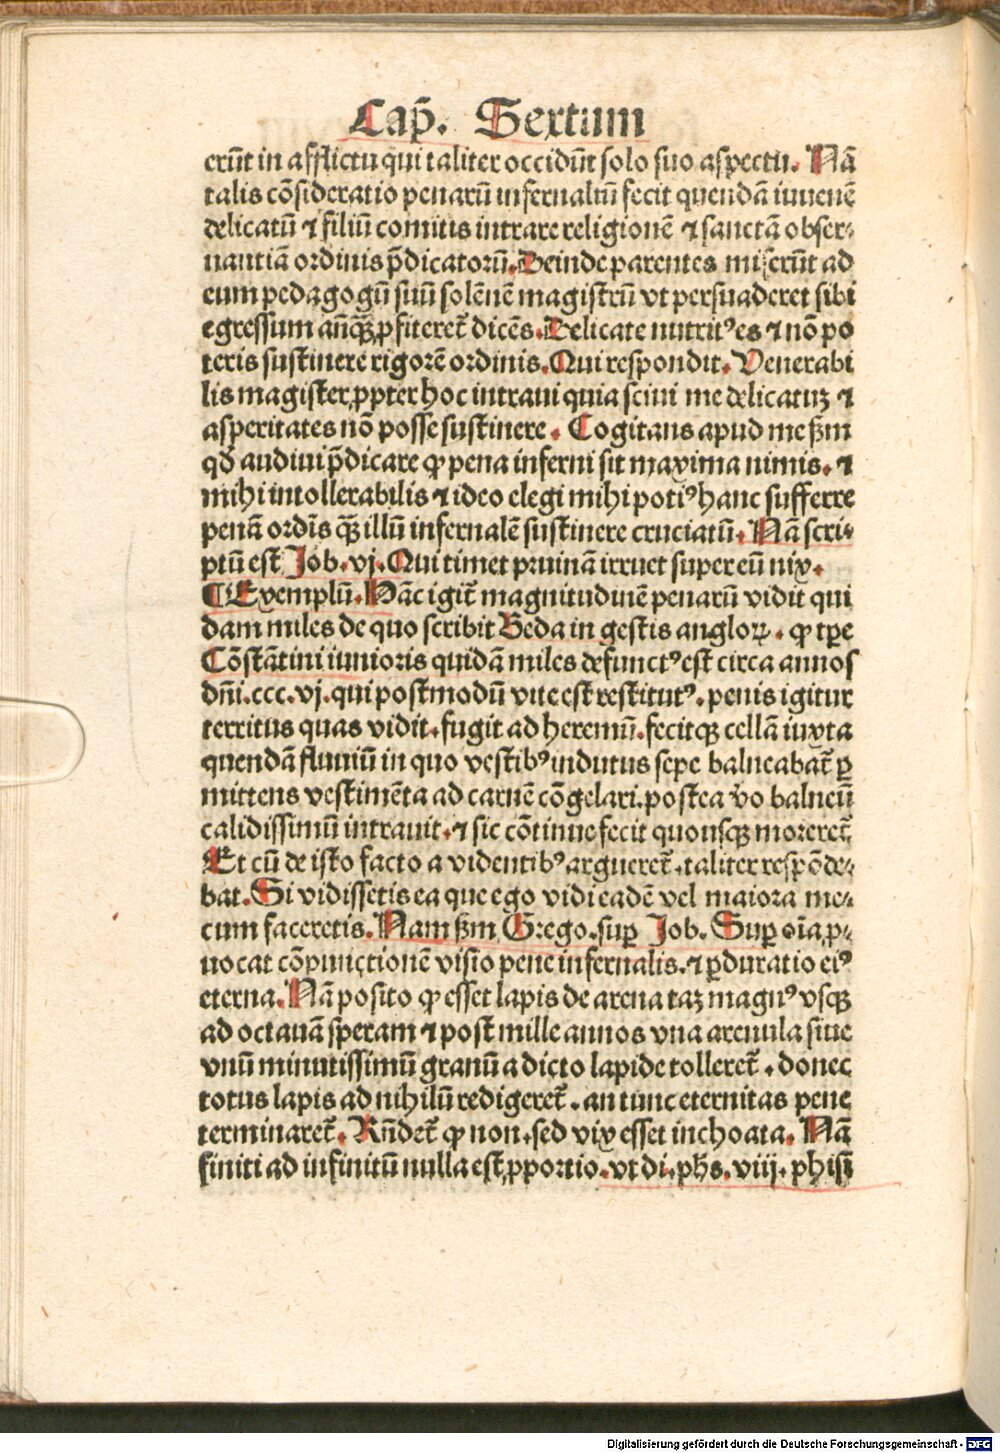 Cap̄. Sextum
erūt in afflictu qui taliter occidūt solo suo aspectu. Nā
talis cōsideratio penarū infernaliū fecit quendā iuuenē
delicatū ⁊ filiū comitis intrare religionē ⁊ sanctā obser⸗
uantiā ordinis p̄dicatorū. Deinde parentes miserūt ad
eum pedagogū suū solēnē magistrū vt persuaderet sibi
egressum anq̄ꝫ ꝓfiteret̄ dicēs. Delicate nutritꝰ es ⁊ nō po
teris sustinere rigorē ordinis. Qui respondit. Venerabi
lis magister, ꝓpter hoc intraui quia sciui me delicatuꝫ ⁊
asperitates nō posse sustinere. Cogitans apud me ßm
qd̄ audiui p̄dicare ꝙ pena inferni sit maxima nimis. ⁊
mihi intollerabilis ⁊ ideo elegi mihi potiꝰ hanc sufferre
penā ordīs q̄ꝫ illū infernalē sustinere cruciatū. Nā scri⸗
ptū est Job. vj. Qui timet pruinā irruet super eū nix.
¶ Exemplū. Hāc igit̄ magnitudinē penarū vidit qui
dam miles de quo scribit Beda in gestis angloꝝ. ꝙ tꝑe
Cōstātini iunioris quidā miles defunctꝰ est circa annos
dn̄i. ccc. vj. qui postmodū vite est restitutꝰ. penis igitur
territus quas vidit. fugit ad heremū. fecitqꝫ cellā iuxta
quendā fluuiū in quo vestibꝰ indutus sepe balneabat̄ ꝑ
mittens vestimēta ad carnē cōgelari. postea v̄o balneū
calidissimū intrauit. ⁊ sic cōtinue fecit quousqꝫ moreret̄
Et cū de isto facto a videntibꝰ argueret̄. taliter respōde⸗
bat. Si vidissetis ea que ego vidi eadē vel maiora me⸗
cum faceretis. Nam ßm Grego. suꝑ Job. Suꝑ oīa, ꝓ⸗
uocat cōpunctionē visio pene infernalis. ⁊ ꝑduratio eiꝰ
eterna. Nā posito ꝙ esset lapis de arena taꝫ magnꝰ vsqꝫ
ad octauā speram ⁊ post mille annos vna arenula siue
vnū minutissimū granū a dicto lapide tolleret̄. donec
totus lapis ad nihilū redigeret̄. an tunc eternitas pene
terminaret̄. Rn̄det̄ ꝙ non. sed vix esset inchoata. Nā
finiti ad infinitū nulla est, ꝓportio. vt di. ph̄s. viij. phisi
Digitalisierung gefördert durch die Deutsche Forschungsgemeinschaft - DFG